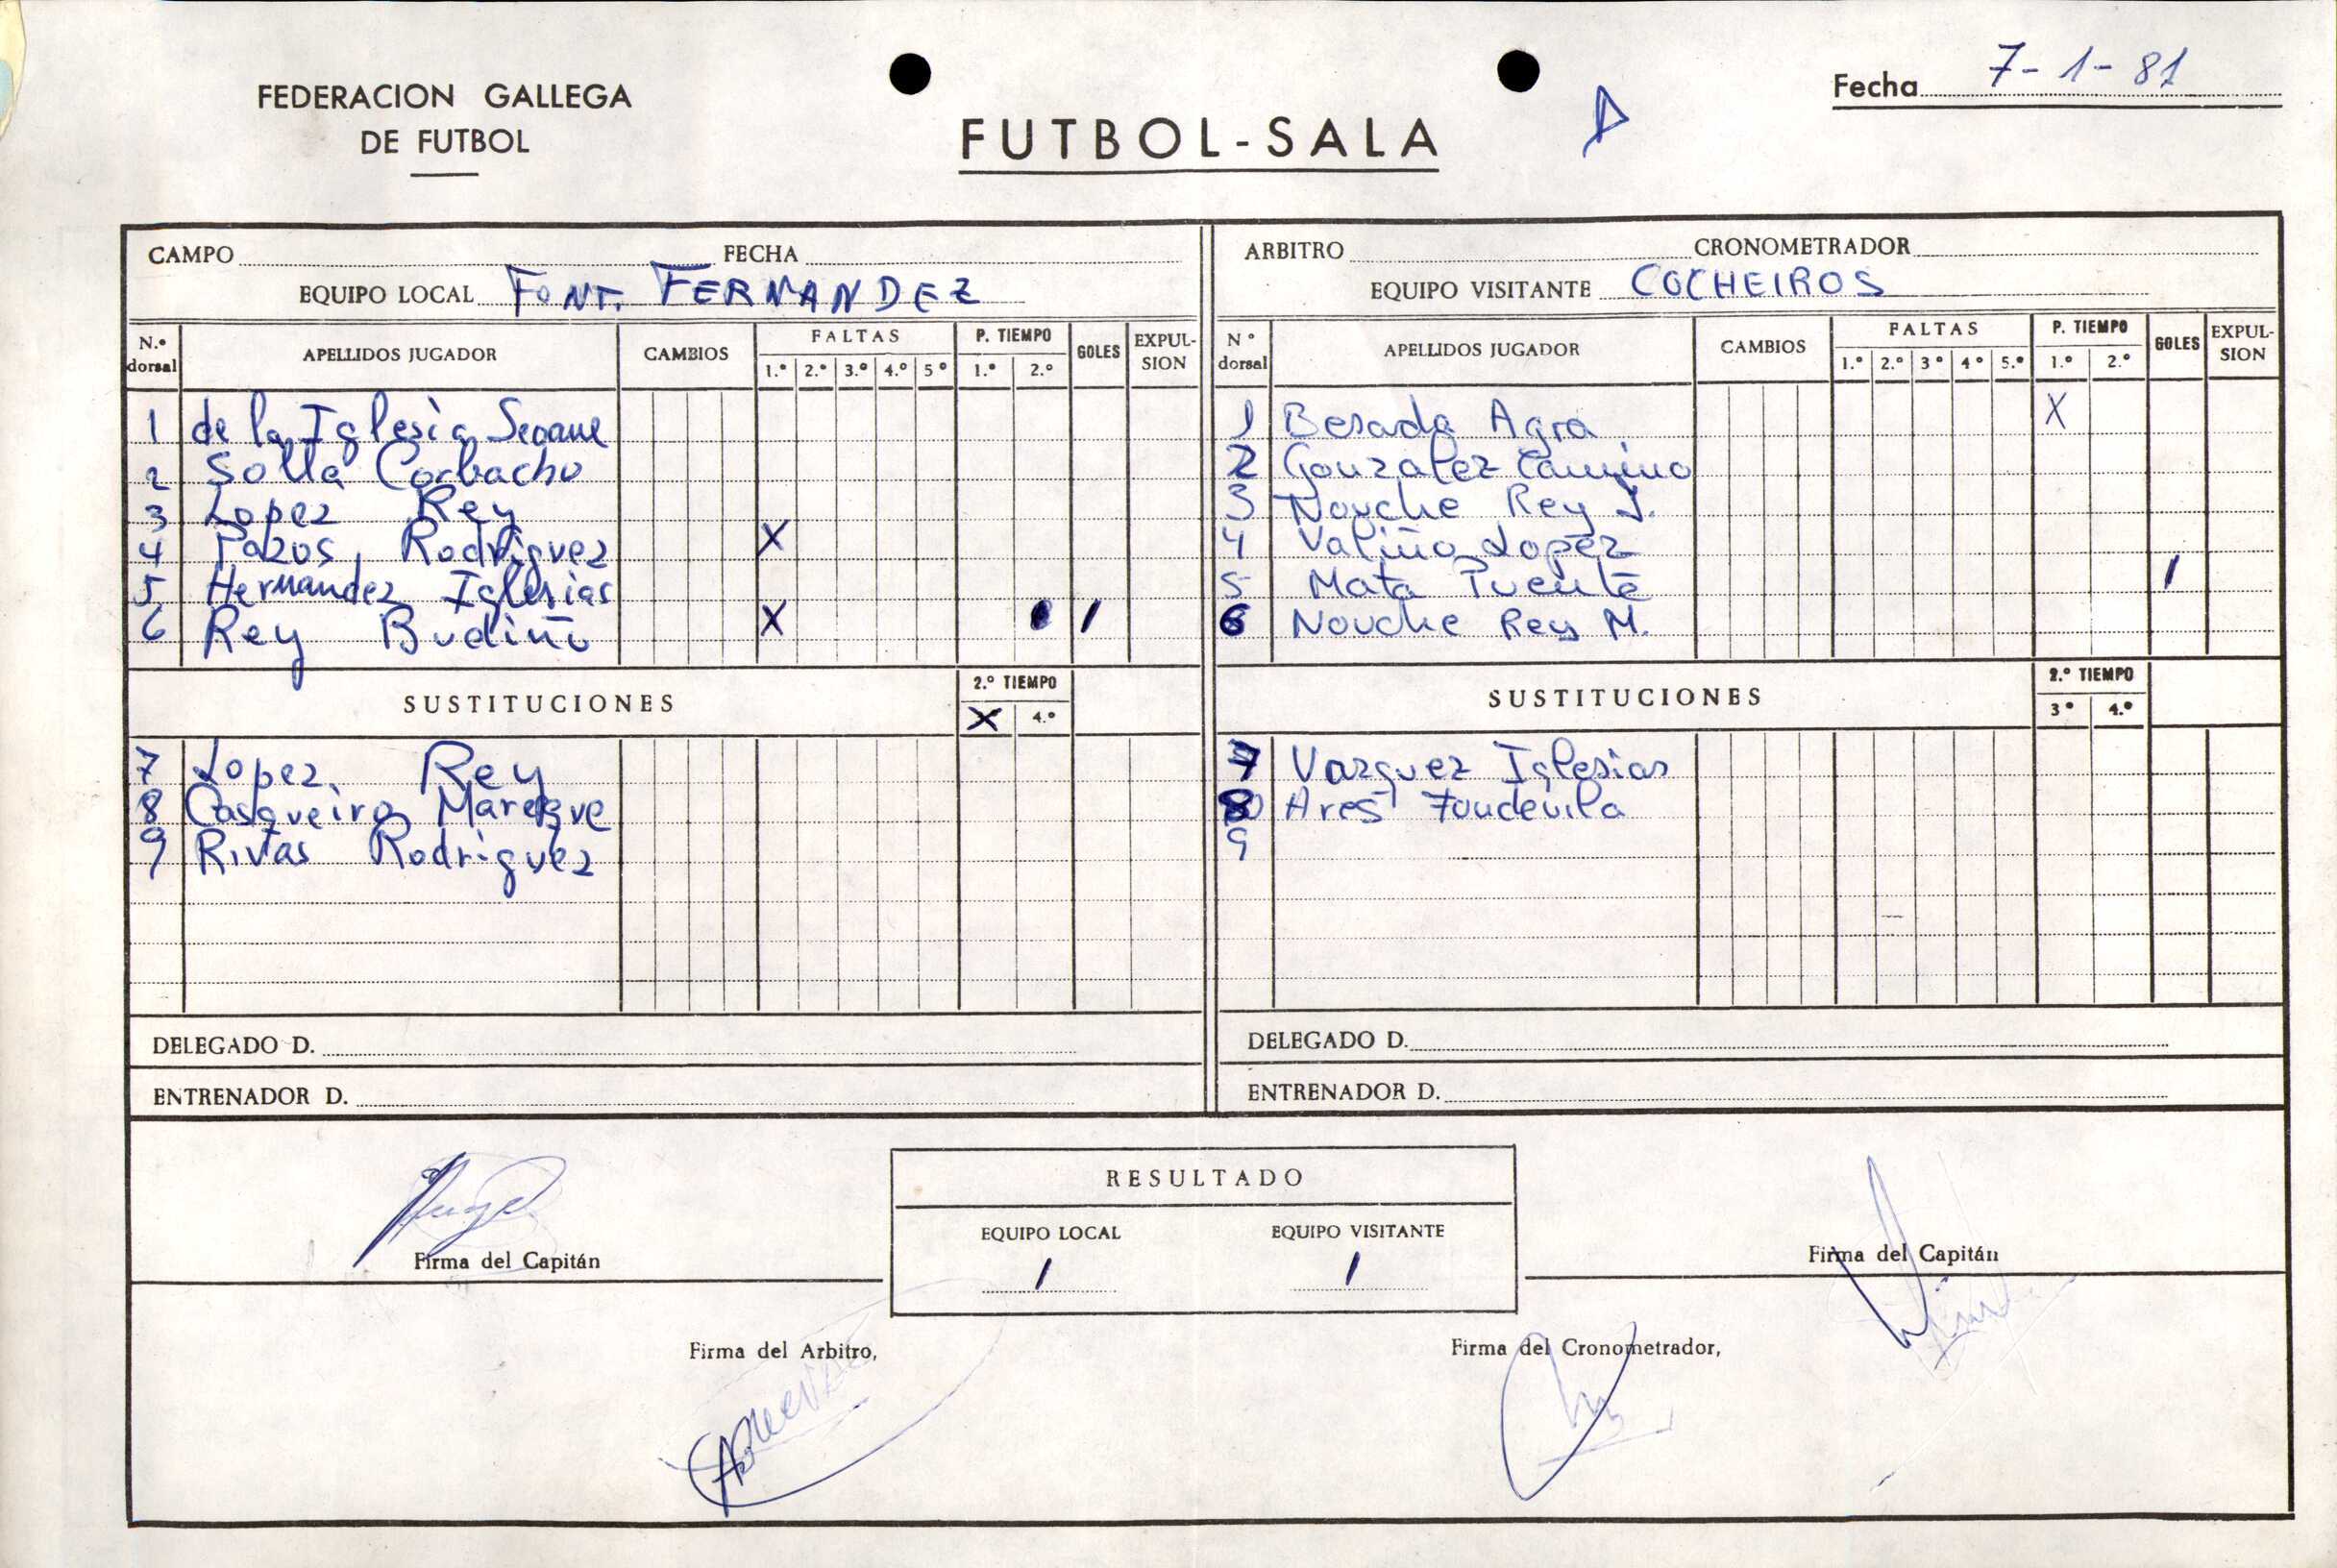 FEDERACION GALLEGA
DE FUTBOL
FUTBOL-SALA
A
Fecha 7-1-81
CAMPO FECHA
EQUIPO LOCAL FONT. FERNANDEZ
N.º dorsal APELLIDOS JUGADOR CAMBIOS FALTAS 1.º 2.º 3.º 4.º 5º P. TIEMPO 1.º 2.º GOLES EXPULSION
1 de la Iglesia Seoane
2 Solla Corbacho
3 Lopez Rey
4 Pazos Rodriguez X
5 Hernandez Iglesias
6 Rey Budiño X 1
SUSTITUCIONES 2.º TIEMPO X 4.º
7 Lopez Rey
8 Casqueiro Mareque
9 Rivas Rodriguez
DELEGADO D.
ENTRENADOR D.
ARBITRO CRONOMETRADOR
EQUIPO VISITANTE COCHEIROS
Nº dorsal APELLIDOS JUGADOR CAMBIOS FALTAS 1.º 2.º 3º 4º 5.º P. TIEMPO 1.º 2.º GOLES EXPULSION
1 Besada Agra X
2 Gonzalez Camino
3 Nouche Rey J.
4 Valiño Lopez
5 Mata Puente 1
6 Nouche Rey M.
SUSTITUCIONES 2.º TIEMPO 3º 4.º
7 Vazquez Iglesias
8 Ares Foudevila
9
DELEGADO D.
ENTRENADOR D.
RESULTADO
EQUIPO LOCAL EQUIPO VISITANTE
1 1
Firma del Capitán
Firma del Capitán
Firma del Arbitro,
Firma del Cronometrador,